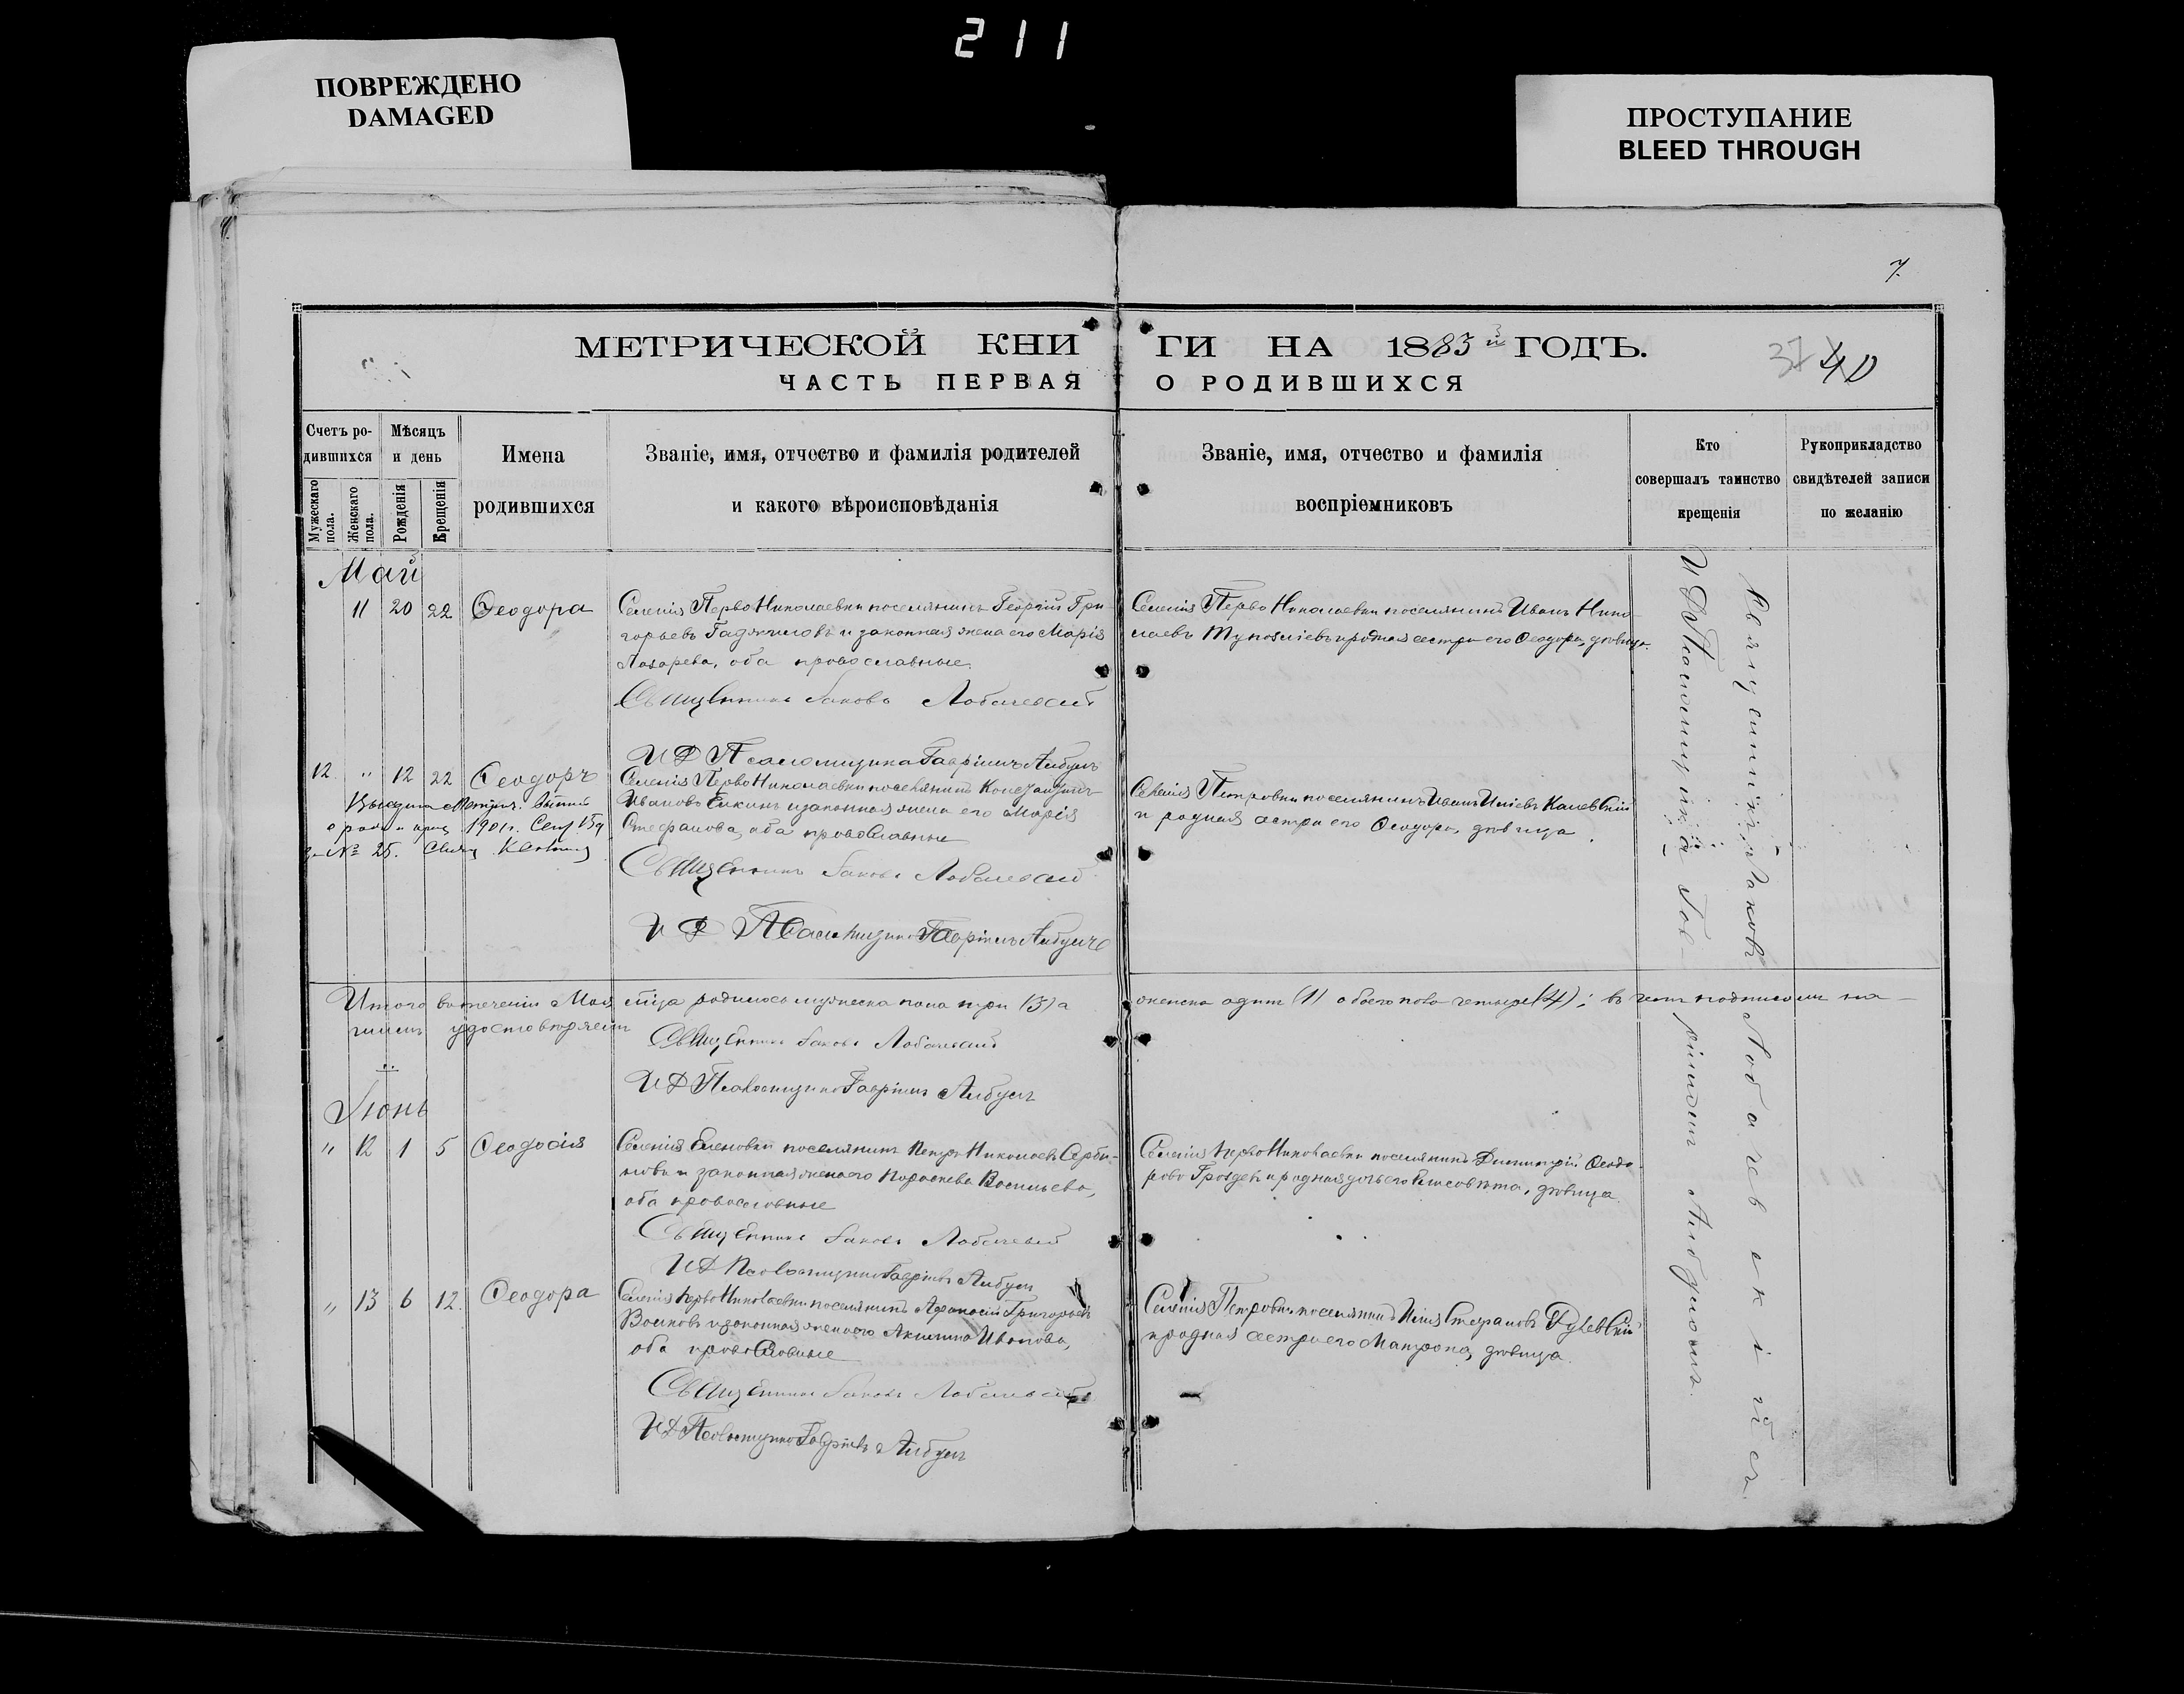 211
ПОВРЕЖДЕНО
DAMAGED
ПРОСТУПАНИЕ
BLEED THROUGH
7.
МЕТРИЧЕСКОЙ КНИГИ НА 1883й ГОДЪ.
37 40
ЧАСТЬ ПЕРВАЯ О РОДИВШИХСЯ
Счетъ ро-
дившихся
Мужескаго пола.
Женскаго пола.
Мѣсяцъ
и день
Рожденія
Крещенія
Имена
родившихся
Званіе, имя, отчество и фамилія родителей
и какого вѣроисповѣданія
Званіе, имя, отчество и фамилія
воспріемниковъ
Кто
совершалъ таинство
крещенія
Рукоприкладство
свидѣтелей записи
по желанію
Май
11 20 22 Ѳеодора
Селенія Перво Николаевки поселянинъ Георгій Гри-
горьевъ и законная жена его Марія
Лазарева, оба православные.
Священникъ Іаковъ Лобачевскій
И Д Псаломщика Гавріилъ
Селенія Перво Николаевки поселянинъ Иванъ Нико-
лаевъ и родная сестра его Ѳеодора, дѣвица.
12. " 12 22 Ѳеодоръ
Выдана Метрич.
1901 г. Сент.
за № 25.
Селенія Перво Николаевки поселянинъ Константинъ
Ивановъ и законная жена его Марія
Стефанова, оба православные
Священникъ Іаковъ Лобачевскій
И Д Псаломщика Гавріилъ
Селенія Петровки поселянинъ Иванъ Иліевъ
и родная сестра его Ѳеодора, дѣвица.
Итого въ теченіи Мая м-ца родилось мужеска пола три (3) а женска одинъ (1) обоего пола четыре (4); въ чемъ подписомъ на-
шимъ удостовѣряемъ
Священникъ Іаковъ Лобачевскій
И Д Псаломщика Гавріилъ
Іюнь
" 12 1 5 Ѳеодосія
Селенія Еленовки поселянинъ Петръ Николаевъ
и законная жена его Параскева Васильева,
оба православные
Священникъ Іаковъ Лобачевскій
И Д Псаломщика Гавріилъ
Селенія Перво Николаевки поселянинъ Димитрій Ѳеодо-
ровъ и родная дочь его Елисавета, дѣвица.
" 13 6 12. Ѳеодора
Селенія Перво Николаевки поселянинъ Афанасій Григорьевъ
и законная жена его Акилина Иванова,
оба православные
Священникъ Іаковъ Лобачевскій
И Д Псаломщика Гавріилъ
Селенія Петровки поселянинъ Илія Стефановъ
и родная сестра его Матрона, дѣвица.
И Д Псаломщика Гав-
ріиломъ
Священникъ Іаковъ
Лобачевскій съ